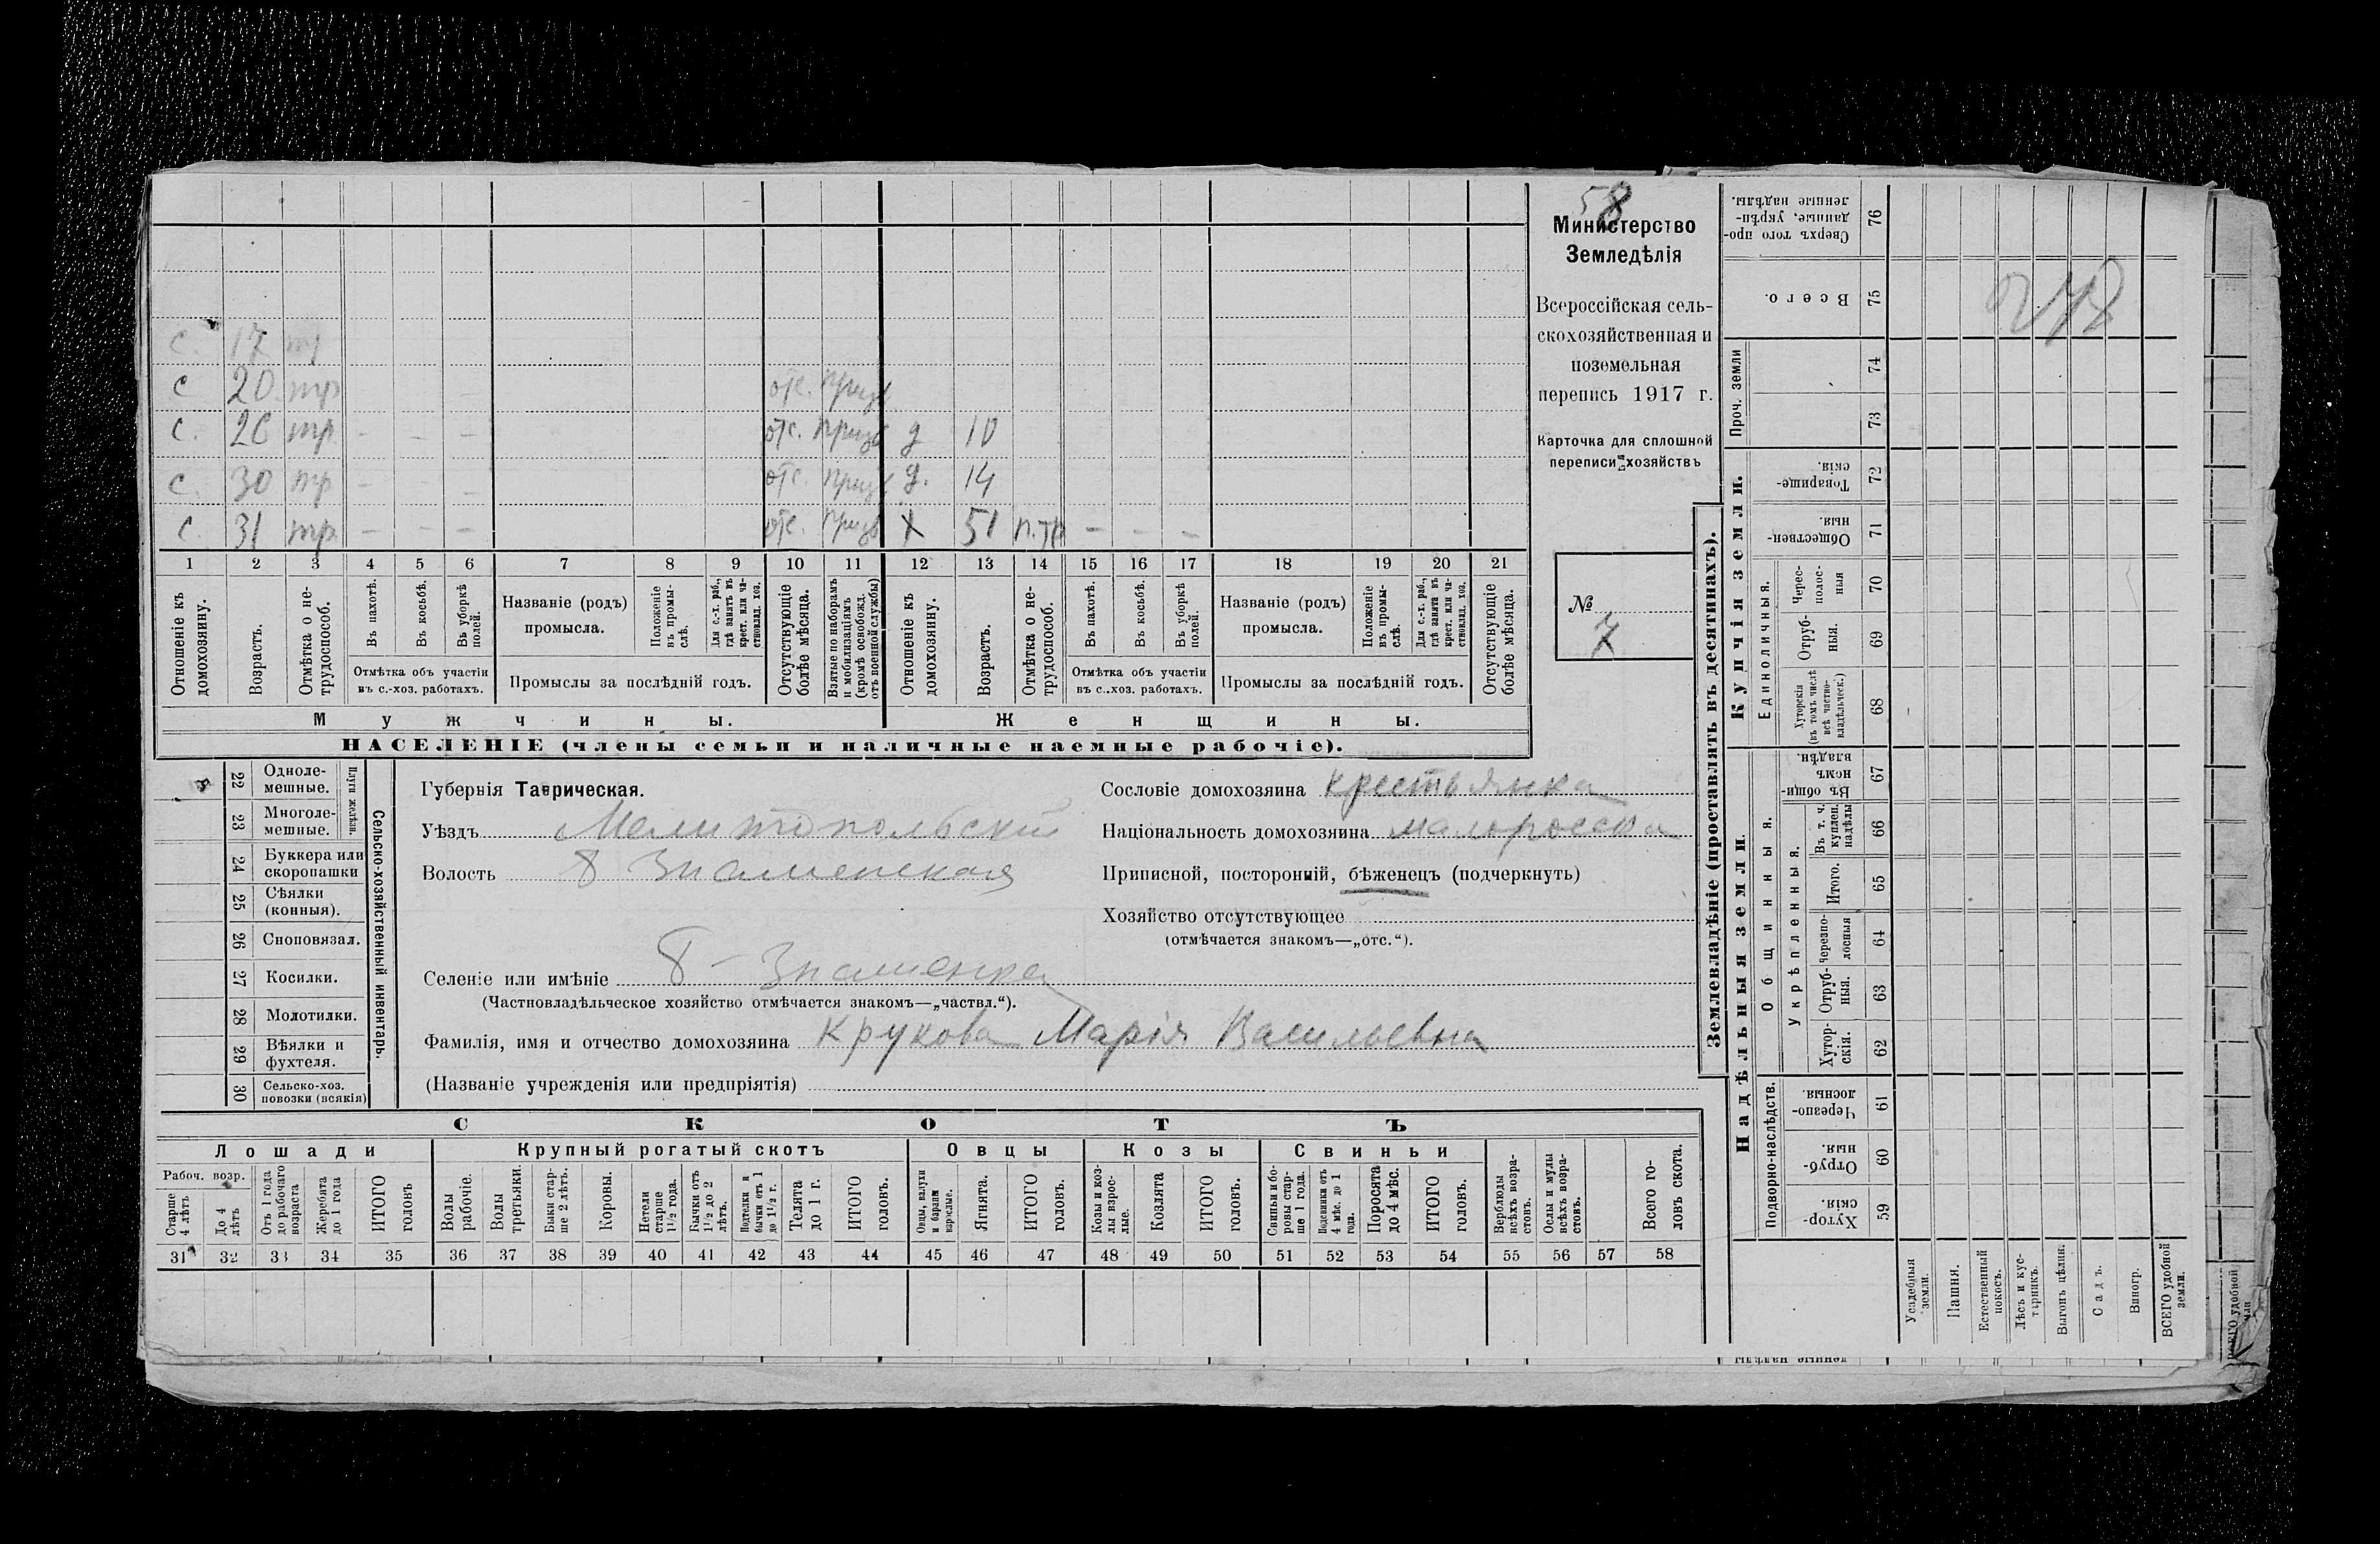 58
Министерство
Земледѣлія
Всероссійская сель-
скохозяйственная и
поземельная
перепись 1917 г.
Карточка для сплошной
переписи хозяйствъ
№
7
с. 17 тр
с 20 тр отс. призв
с. 26 тр - - - отс. призв д 10
с. 30 тр - - - отс. призв д. 14
с. 31 тр. - - - отс. призв х 51 п.тр - - -
1 2 3 4 5 6 7 8 9 10 11 12 13 14 15 16 17 18 19 20 21
Отношеніе къ домохозяину.
Возрастъ.
Отмѣтка о не-трудоспособ.
Въ пахотѣ.
Въ косьбѣ.
Въ уборкѣ полей.
Отмѣтка объ участіи
въ с.-хоз. работахъ.
Названіе (родъ)
промысла.
Положеніе въ промы-слѣ.
Для с.-х. раб., гдѣ занятъ въ крест. или ча-стновлад. хоз.
Промыслы за послѣдній годъ.
Отсутствующіе болѣе мѣсяца.
Взятые по наборамъ и мобилизаціямъ (кромѣ освобожд. отъ военной службы)
Отношеніе къ домохозяину.
Возрастъ.
Отмѣтка о не-трудоспособ.
Въ пахотѣ.
Въ косьбѣ.
Въ уборкѣ полей.
Отмѣтка объ участіи
въ с.-хоз. работахъ.
Названіе (родъ)
промысла.
Положеніе въ промы-слѣ.
Для с.-х. раб., гдѣ занята въ крест. или ча-стновлад. хоз.
Промыслы за послѣдній годъ.
Отсутствующіе болѣе мѣсяца.
Мужчины.
Женщины.
НАСЕЛЕНІЕ (члены семьи и наличные наемные рабочіе).
22 Одноле-мешные.
23 Многоле-мешные.
Плуги желѣзн.
24 Буккера или скоропашки
25 Сѣялки (конныя).
26 Сноповязал.
27 Косилки.
28 Молотилки.
29 Вѣялки и фухтеля.
30 Сельско-хоз. повозки (всякія)
Сельско-хозяйственный инвентарь.
Губернія Таврическая.
Уѣздъ Мелитопольскій
Волость Б Знаменская
Сословіе домохозяина крестьянка
Національность домохозяина малоросска
Приписной, посторонній, бѣженецъ (подчеркнуть)
Хозяйство отсутствующее
(отмѣчается знакомъ—„отс.“).
Селеніе или имѣніе Б - Знаменка
(Частновладѣльческое хозяйство отмѣчается знакомъ—„частвл.“).
Фамилія, имя и отчество домохозяина Крукова Марія Васильевна
(Названіе учрежденія или предпріятія)
СКОТЪ
Лошади
Крупный рогатый скотъ
Овцы
Козы
Свиньи
Рабоч. возр.
Старше 4 лѣтъ
До 4 лѣтъ
Отъ 1 года до рабочаго возраста
Жеребята до 1 года
ИТОГО головъ
Волы рабочіе.
Волы третьяки.
Быки стар-ше 2 лѣтъ.
Коровы.
Нетели старше 1½ года.
Бычки отъ 1½ до 2 лѣтъ.
Подтелки и бычки отъ 1 до 1½ г.
Телята до 1 г.
ИТОГО головъ.
Овцы, валухи и бараны взрослые.
Ягнята.
ИТОГО головъ.
Козы и коз-лы взрос-лые.
Козлята
ИТОГО головъ.
Свиньи и бо-ровы стар-ше 1 года.
Подсвинки отъ 4 мѣс. до 1 года.
Поросята до 4 мѣс.
ИТОГО головъ.
Верблюды всѣхъ возра-стовъ.
Ослы и мулы всѣхъ возра-стовъ.
Всего го-ловъ скота.
31 32 33 34 35 36 37 38 39 40 41 42 43 44 45 46 47 48 49 50 51 52 53 54 55 56 57 58
Землевладѣніе (проставлять въ десятинахъ).
Купчія земли.
Надѣльныя земли.
Сверхъ того про-данные, укрѣп-ленные надѣлы. 76
Всего. 75
Проч. земли
74
73
Товарище-скія. 72
Обществен-ныя. 71
Единоличныя.
Черес-полос-ныя 70
Отруб-ныя. 69
Хуторскія (въ томъ числѣ всѣ частно-владѣльческ.) 68
Общинныя.
Въ общи-номъ владѣн. 67
Укрѣпленныя.
Въ т. ч. куплен. надѣлы 66
Итого. 65
Черезпо-лосныя 64
Отруб-ныя. 63
Хутор-скія. 62
Подворно-наслѣдств.
Черезпо-лосныя 61
Отруб-ныя. 60
Хутор-скія. 59
Усадебныя земли.
Пашня.
Естественный покосъ.
Лѣсъ и кус-тарникъ.
Выгонъ цѣлин.
Садъ.
Виногр.
ВСЕГО удобной земли.